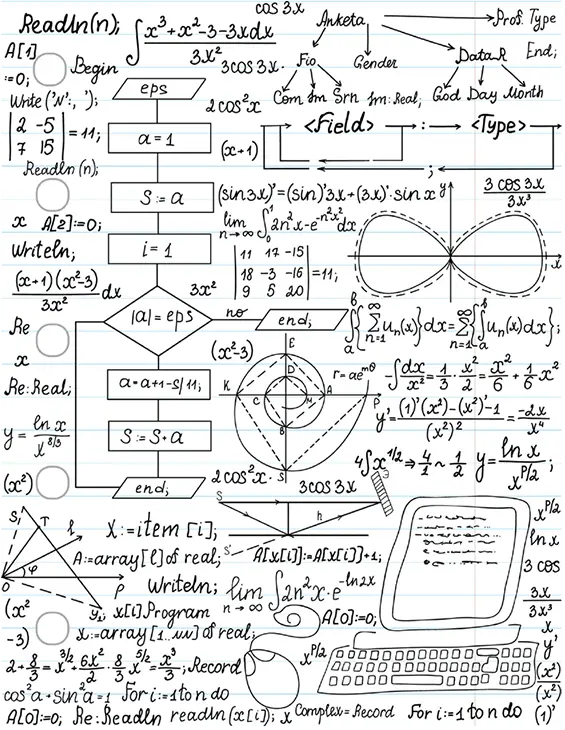 Readln(n);
∫ x³+x²-3-3xdx / 3x²
cos 3x
Anketa
Prof. Type
A[1]
:=0;
Begin
3cos3x.
Fio
Gender
DataR
End;
eps
Com Im Srn
Im: Real;
God Day Month
Write('N':, ');
2cos²x
<Field> : <Type>
;
|2 -5|
|7 15| = 11;
a=1
(x+1)
Readln(n);
S:=a
(sin3x)'=(sin)'3x+(3x)'·sin x
y
3 cos 3x / 3x³
x A[2]:=0;
lim n→∞ ∫₀¹ 2n²x-e^-n²x² dx
Writeln;
i=1
|11 17 -15|
|18 -3 -16| =11;
|9 5 20|
x
(x+1)(x²-3) / 3x² dx
3x²
Re
|a|=eps
no
end;
∫ₐᵇ{∑ₙ₌₁^∞ uₙ(x)}dx=∑ₙ₌₁^∞{∫ₐᵇ uₙ(x)dx};
x
(x²-3)
E
D
r=ae^mθ
-∫dx/x²=1/3·x²/2=x²/6+1/6 x²
Re:Real;
a=a+1-S/11;
K C M A P
B
S
y'=(1)'(x²)-(x²)'-1 / (x²)²=-2x/x⁴
y=ln x / x^8/3
S:=S+a
4∫x^1/2⇒4/1~1/2
y=ln x / x^P/2;
(x²)
end;
2cos²x·
3cos3x
S₁ T l
X:=item[i];
S h
S'
x^P/2
A:=array[l] of real;
A[x[i]]:=A[x[i]]+1;
ln x
O φ P
Writeln;
lim n→∞ ∫2n²x·e^-ln2x
3 cos
y₁
(x²
-3)
x[i].Program
A[0]:=0;
3x / 3x³
x:=array[1..nn] of real;
x
2+8/3=x^3/2+6x²/2·8/3x^5/2=x³/3;Record
x^P/2
y'
(x²) / (x²)
cos²a+sin²a=1 For i:=1 to n do
A[0]:=0; Re:Readln readln(x[i]); x Complex=Record For i:=1 to n do (1)'